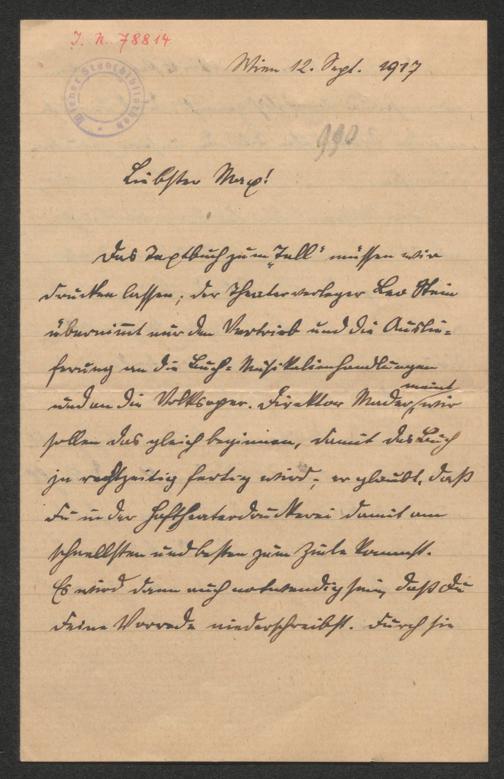 J. N. 78814
Wiener Stadtbibliothek
Wien 12. Sept. 1917
990
Liebster Max!
Das Textbuch zum „Tell“ müssen wir
drucken lassen; der Theaterverleger Leo Stein
übernimmt nur den Vertrieb und die Auslie-
ferung an die Buch- Musikalienhandlungen
und an die Volksoper. Direktor Mader meint, wir
sollen das gleich beginnen, damit das Buch
ja rechtzeitig fertig wird; er glaubt, daß
Du in der Hoftheaterdruckerei damit am
schnellsten und besten zum Ziele kommst.
Es wird dann auch notwendig sein, daß Du
Deine Vorrede niederschreibst. Durch sie